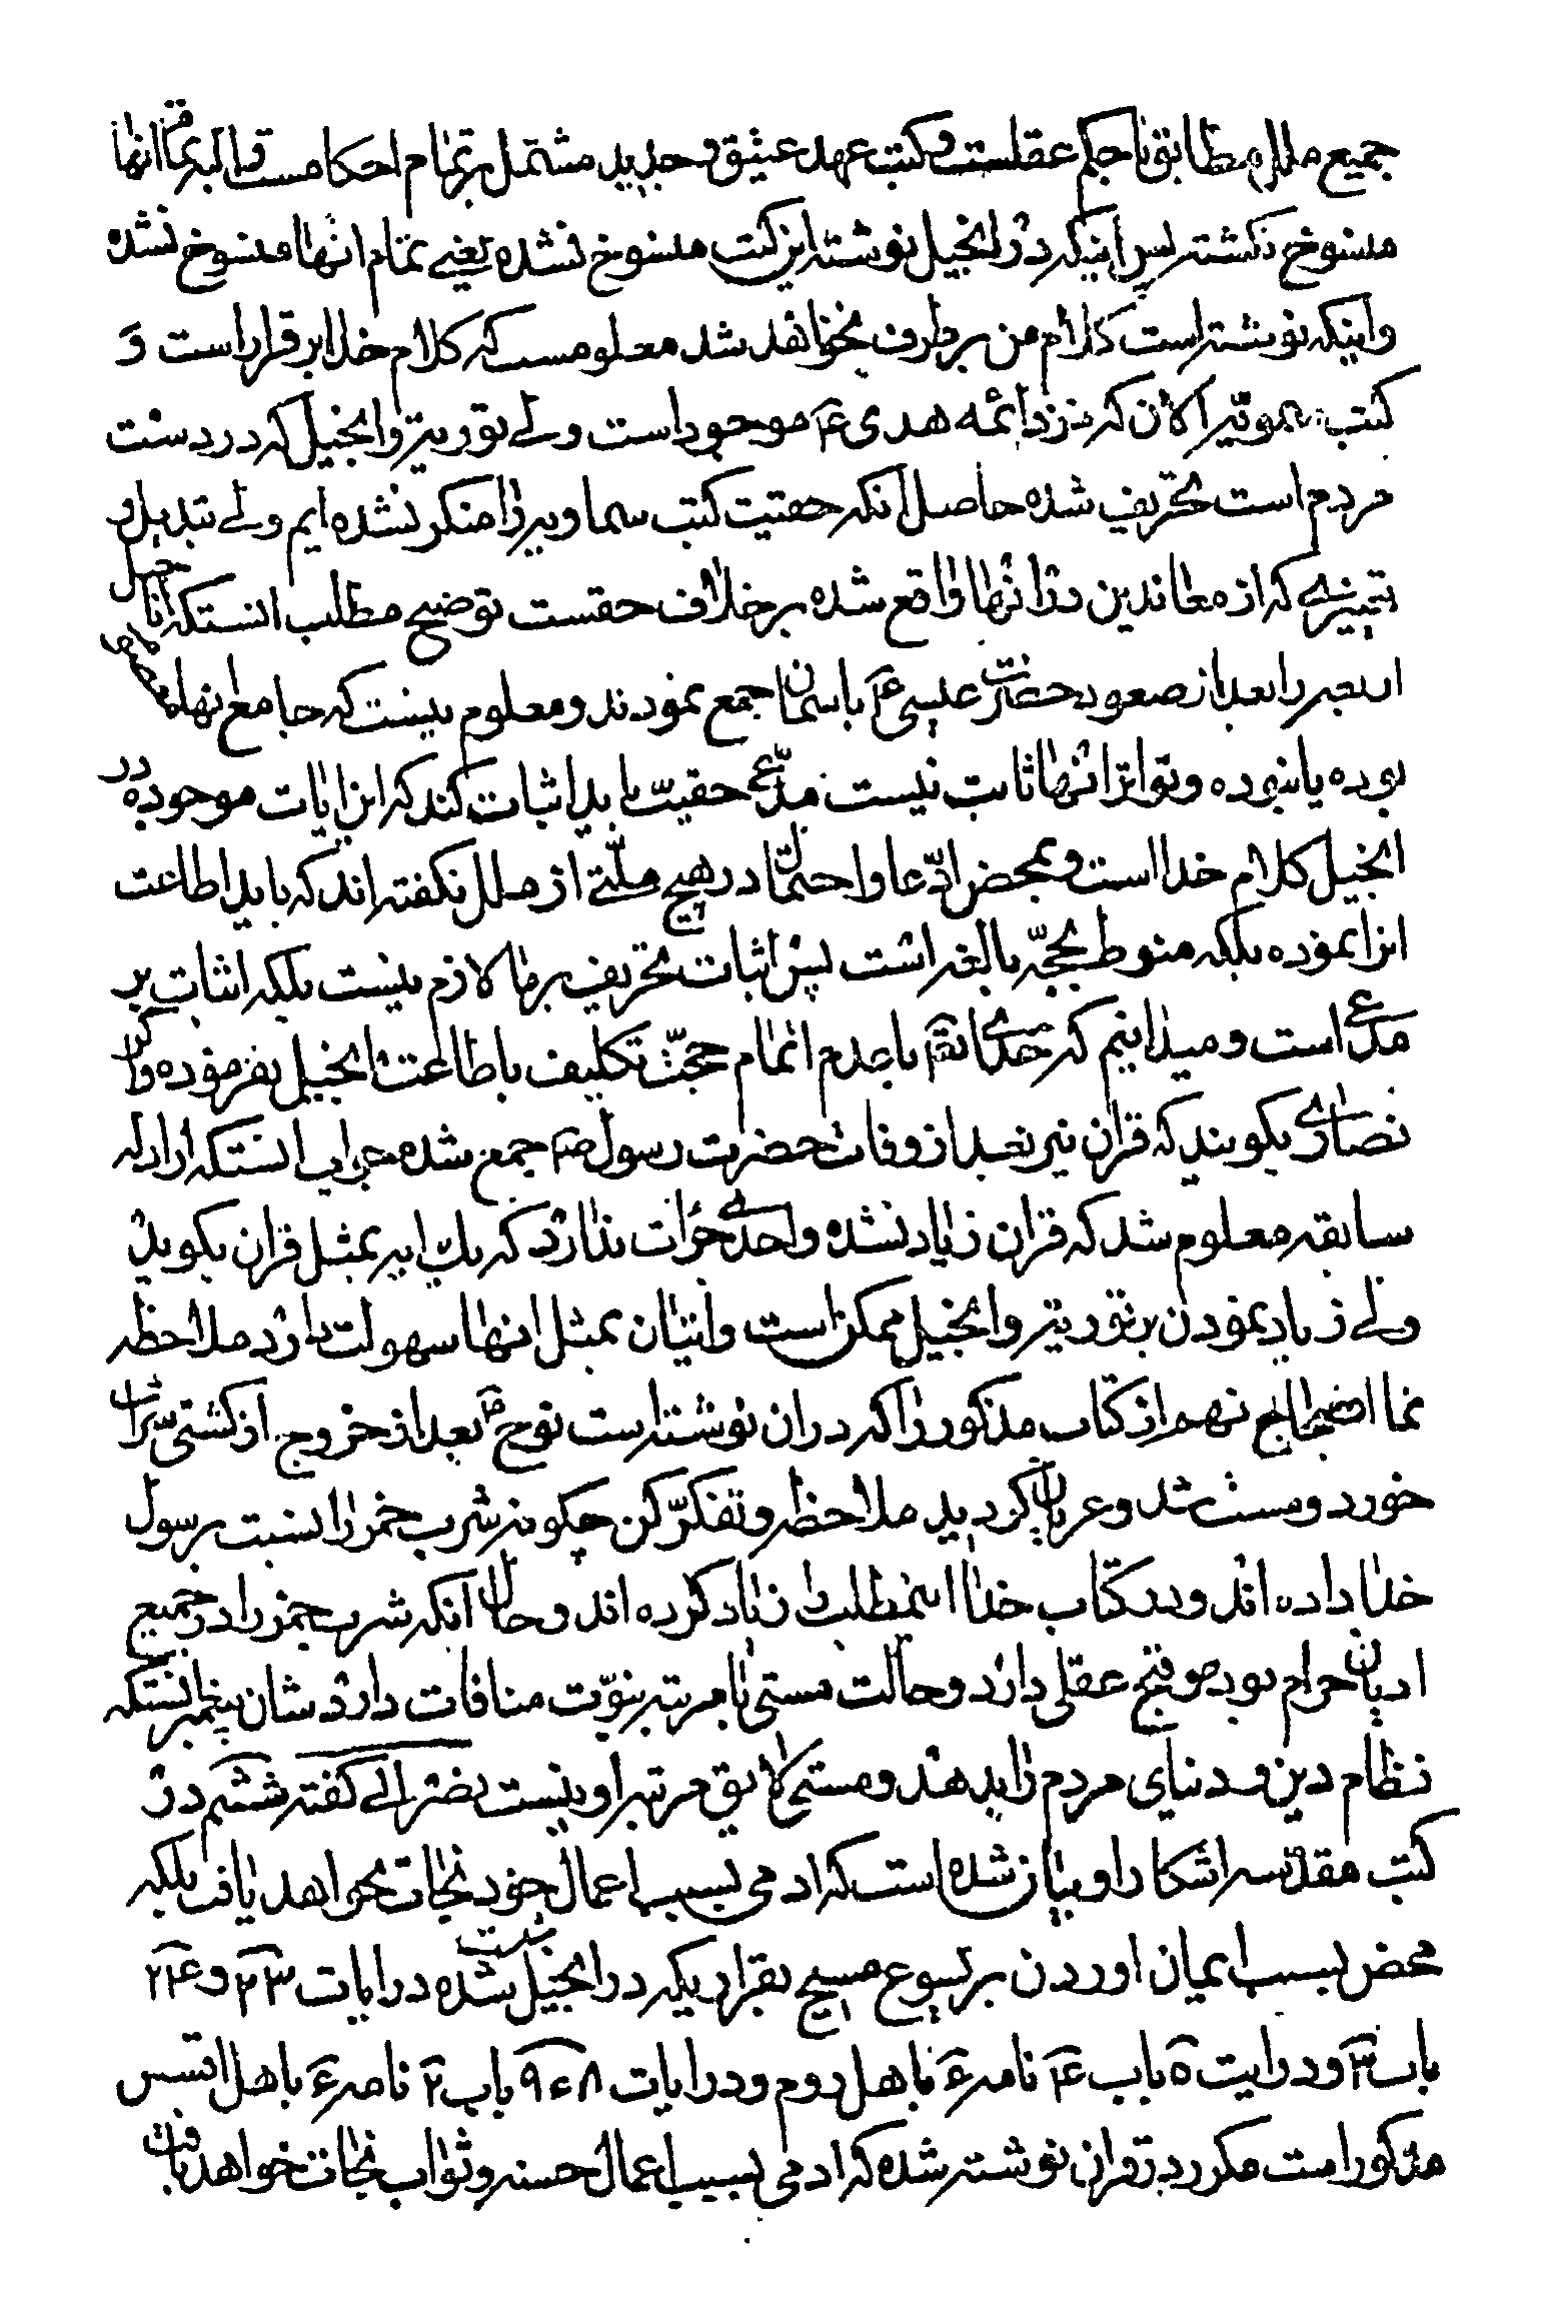 جمیع ملل و مطابق با حکم عقلست و کتب عهد عتیق و جدید مشتمل بر تمام احکامست و البته تمام آنها
منسوخ نکشته پس اینکه در انجیل نوشته این کتب منسوخ نشده یعنی تمام انها منسوخ نشده
و اینکه نوشته است کلام من برطرف نخواهد شد معلومست که کلام خدا برقرار است و
کتب سماویه الآن که نزد ائمه هدی ع موجود است ولی توریة و انجیل که در دست
مردم است تحریف شده حاصل انکه حقیت کتب سماویه را منکر نشده ایم ولی تبدیل و
تغییری که از معاندین در انها واقع شده بر خلاف حقست توضیح مطلب انستکه اناجیل
اربعه را بعد از صعود حضرت عیسی ع باسمان جمع نمودند و معلوم نیست که جامع انها معصوم
بوده یا نبوده و تواتر انها ثابت نیست مدّعی حقیّت باید اثبات کند که این ایات موجوده در
انجیل کلام خدا است و بمحض ادّعا و احتمال در هیچ ملّتی از ملل نکفته اند که باید اطاعت
انرا نموده بلکه منوط بحجّة بالغه است پس اثبات تحریف بر ما لازم نیست بلکه اثبات بر
مدعی است و میدانیم که خدای تع با عدم اتمام حجّت تکلیف باطاعت انجیل نفرموده و اکر
نصاری بکویند که قران نیز بعد از وفات حضرت رسول ص جمع شده جواب انستکه از ادله
سابقه معلوم شد که قران زیاد نشده و احدی جرات ندارد که یک ایه بمثل قران بکوید
ولی زیاد نمودن بر توریة و انجیل ممکن است و اتیان بمثل انها سهولت دارد ملاحظه
نما اصحاح نهم از کتاب مذکور را که در ان نوشته است نوح ع بعد از خروج از کشتی شراب
خورد و مست شد و عریان کردید ملاحظه و تفکّر کن چکونه شرب خمر را نسبت برسول
خدا داده اند و در کتاب خدا اینمطلب را زیاد کرده اند و حال آنکه شرب خمر در جمیع
ادیان حرام بوده و قبح عقلی دارد و حالت مستی با مرتبه نبوّت منافات دارد شان پیغمبر انستکه
نظام دین و دنیای مردم را بدهد و مستی لایق مرتبه او نیست نصرانی کفته ششم در
کتب مقدّسه اشکارا و بیان شده است که ادمی بسبب اعمال خود نجات نخواهد یافت بلکه
محض بسبب ایمان اوردن بر یسوع مسیح بقراریکه در انجیل ثبت شده در ایات ۲۳ و ۲۴
باب ۳ و در ایت ۵ باب ۴ نامه ء باهل روم و در ایات ۸ و ۹ باب ۲ نامه ء باهل افسس
مذکور است مکرر در قران نوشته شده که ادمی بسبب اعمال حسنه و ثواب نجات خواهد یافت